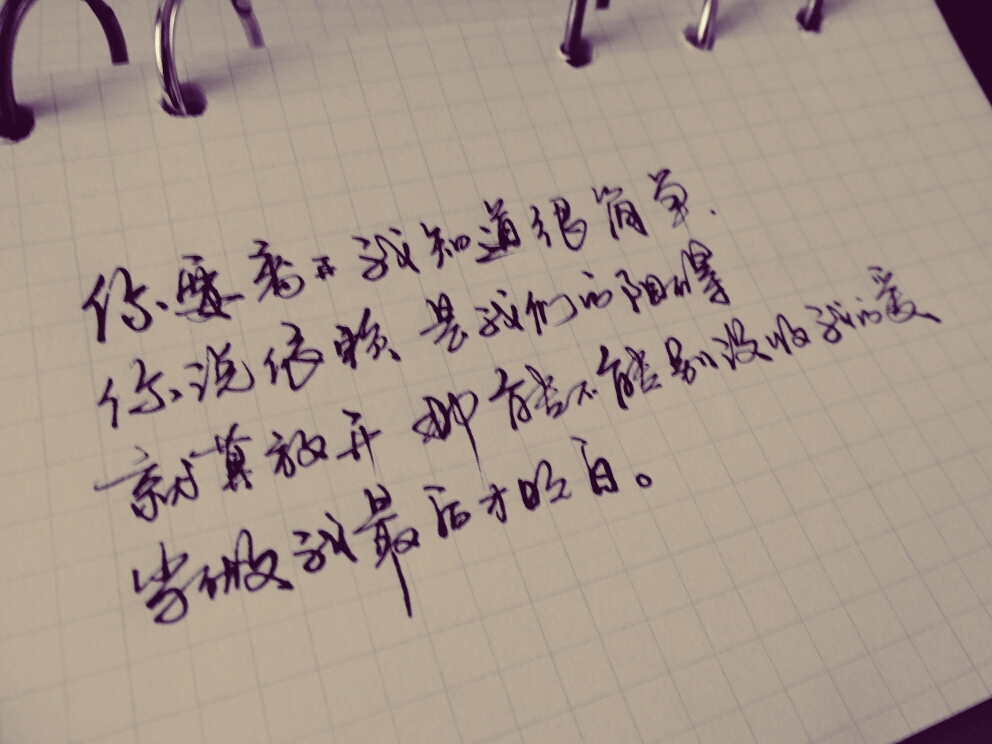 你要离开我知道很简单.
你说依赖是我们的阻碍
就算放开那能不能别没收我的爱
当做我最后才明白。